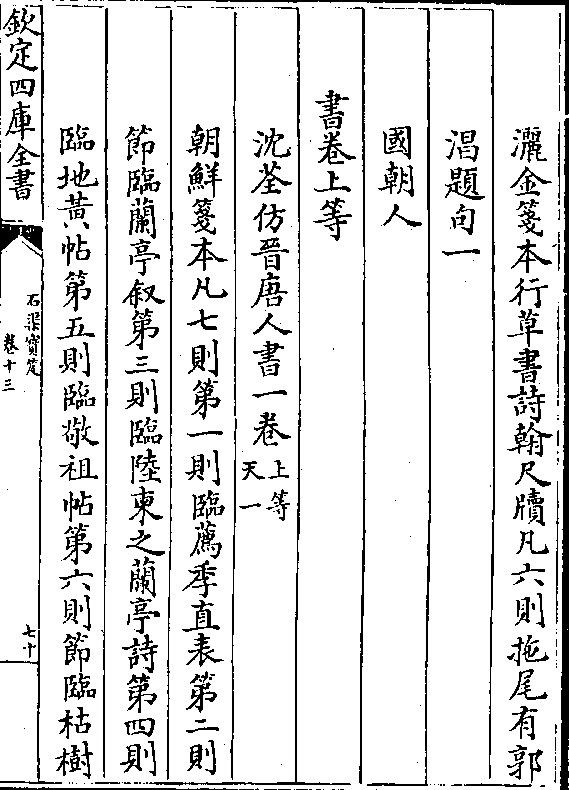 灑金箋本行草書詩翰尺牘凡六則拖尾有郭
淐題句一
國朝人
書卷上等
沈荃仿晉唐人書一卷上等
天一
朝鮮箋本凡七則第一則臨薦季直表第二則
節臨蘭亭叙第三則臨陸柬之蘭亭詩第四則
臨地黃帖第五則臨敬祖帖第六則節臨枯樹
欽定四庫全書
石渠寶笈
卷十三
七十